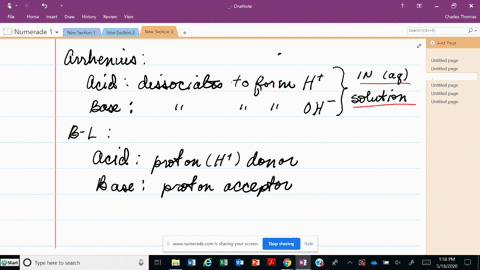 _- OneNote
Charles Thomas
File Home Insert Draw History Review View
Numerade 1
New Section 1
New Section 2
New Section 3
Search (Ctrl+E)
Add Page
Untitled page
Untitled page
Untitled page
Untitled page
Untitled page
Arrhenius:
Acid: dissociates to form H⁺ } IN (aq)
Base: " " " OH⁻ solution
B-L:
Acid: proton (H⁺) donor
Base: proton acceptor
www.numerade.com is sharing your screen. Stop sharing Hide
Start
Type here to search
1:58 PM
5/18/2020